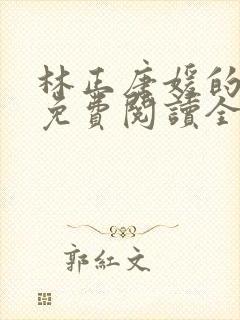 林正唐媛的
免費閱讀全
郭紅文